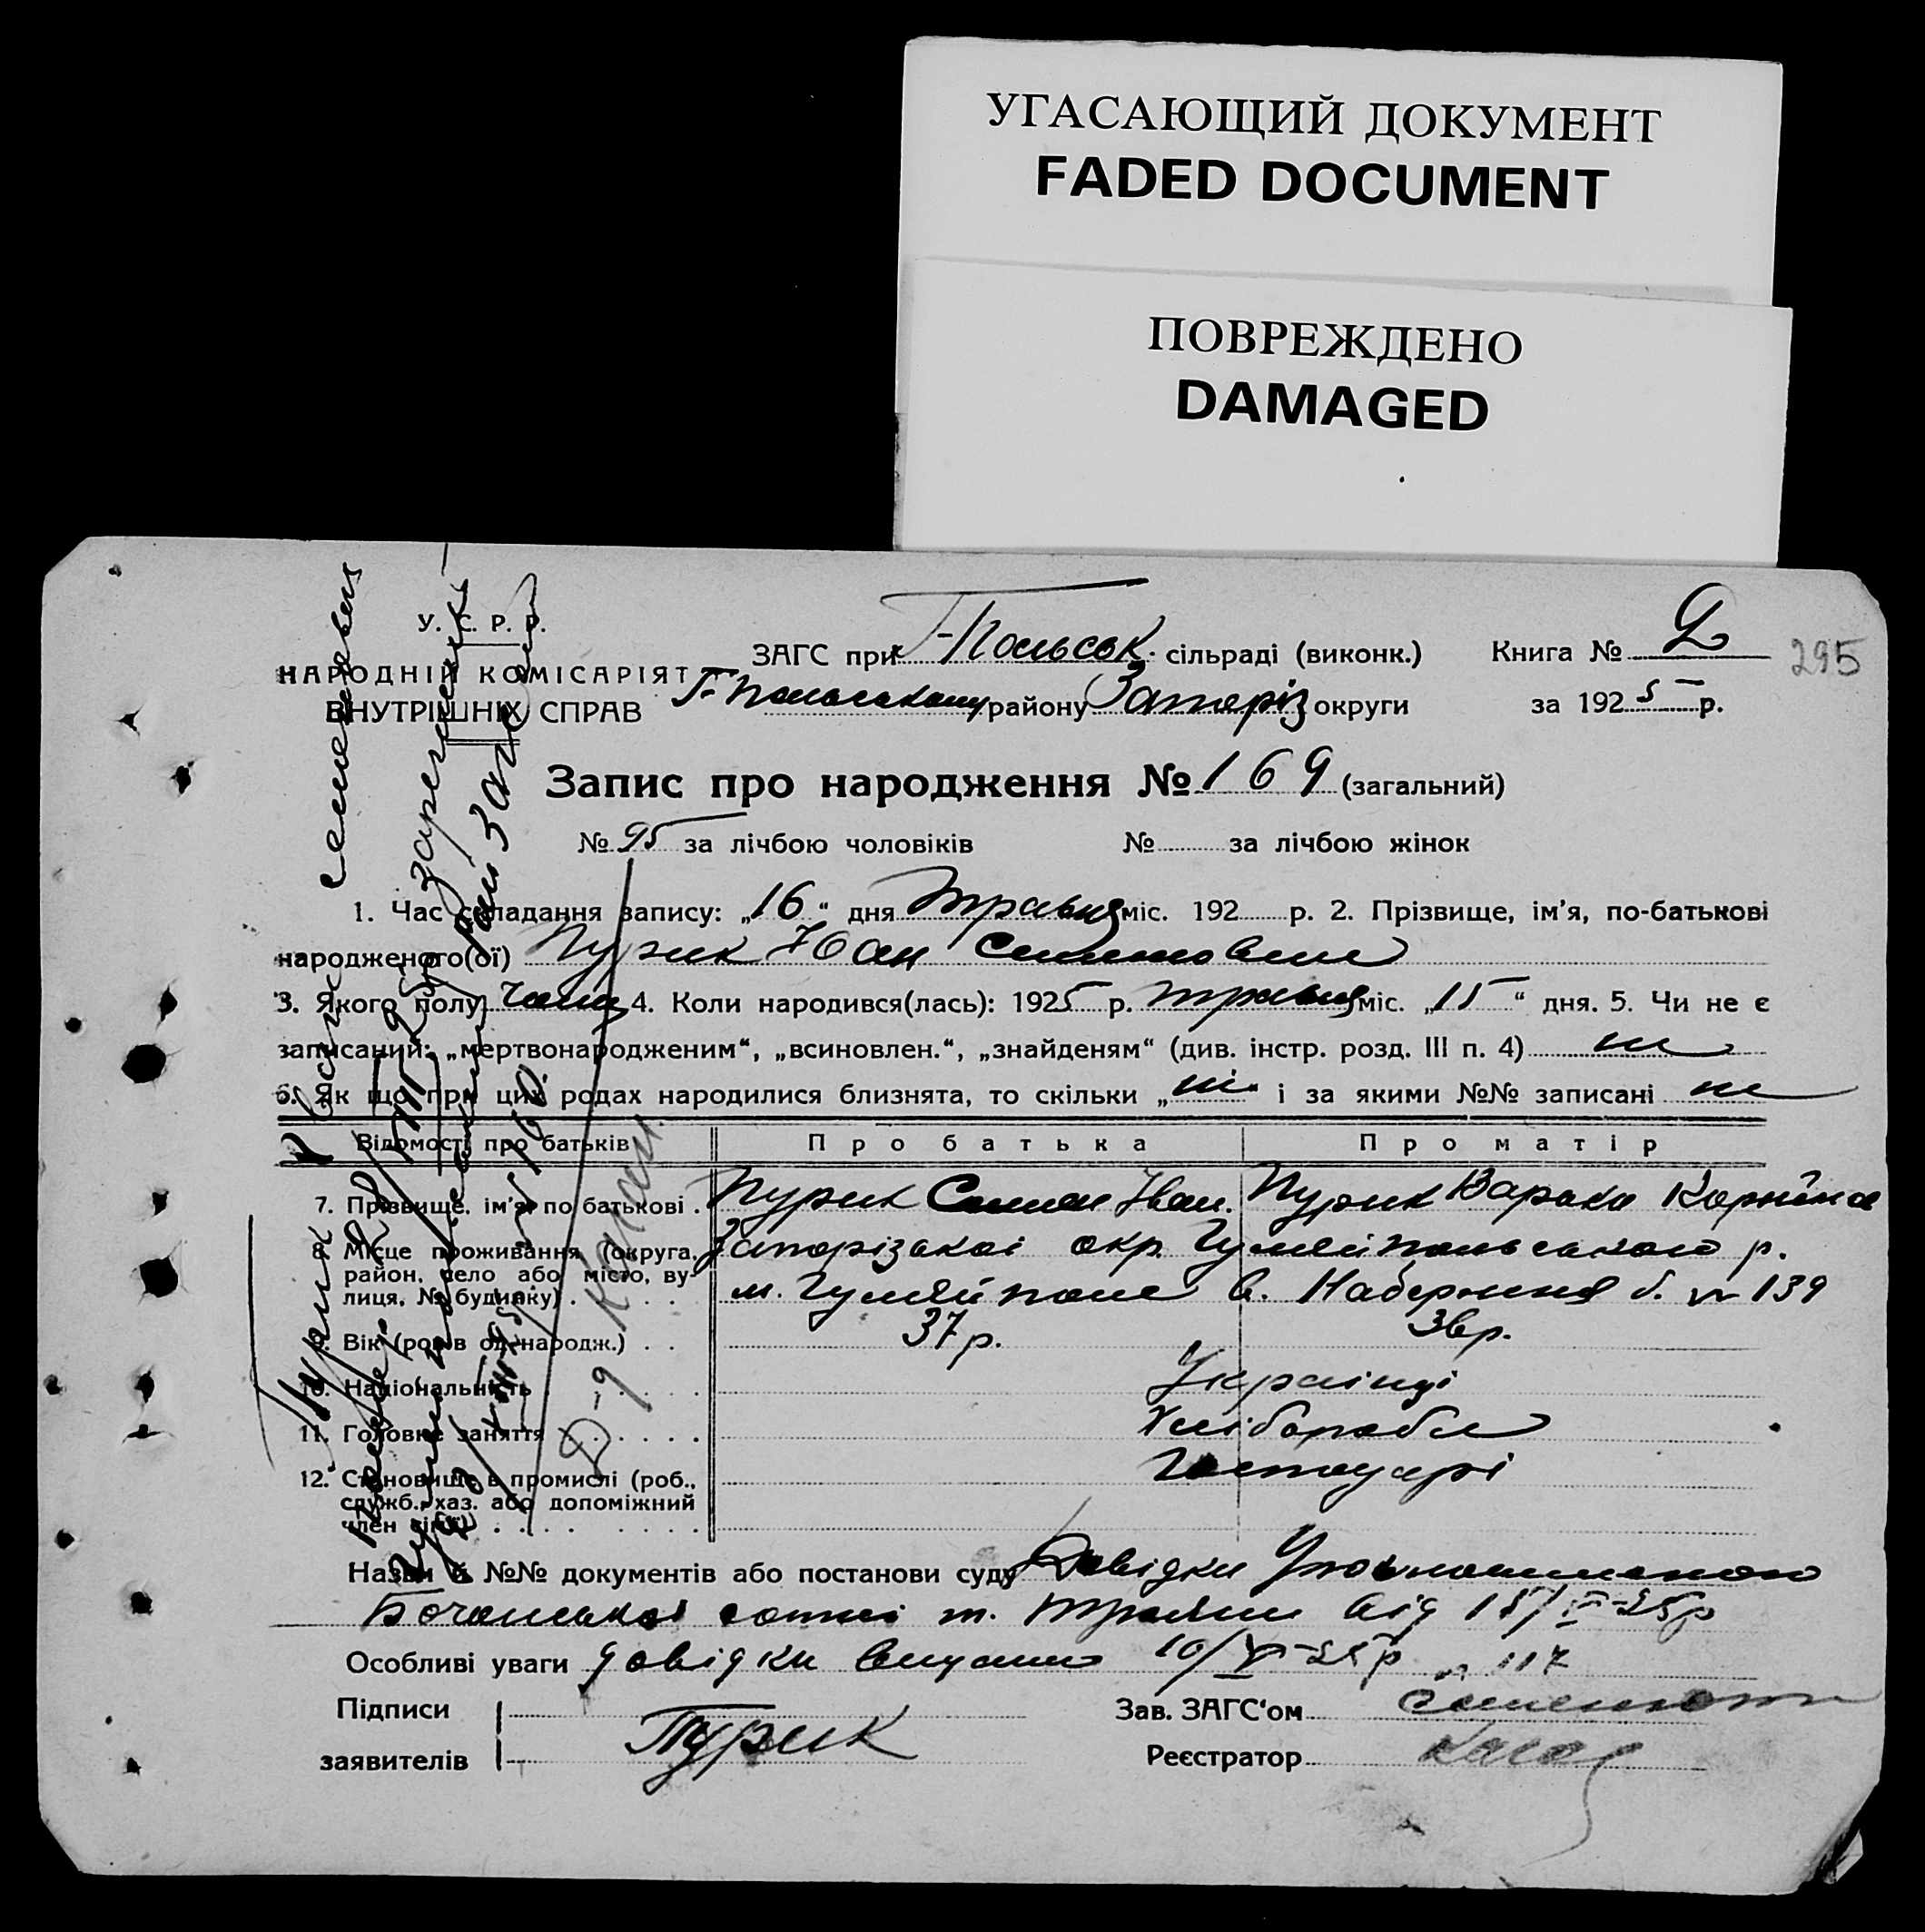 УГАСАЮЩИЙ ДОКУМЕНТ
FADED DOCUMENT
ПОВРЕЖДЕНО
DAMAGED
У. С. Р. Р.
НАРОДНІЙ КОМІСАРІЯТ
ВНУТРІШНІХ СПРАВ
ЗАГС при Г-Польськ. сільраді (виконк.)
Г-Польському району Запоріз округи
Книга № 2
295
за 1925 р.
Запис про народження № 169 (загальний)
№ 95 за лічбою чоловіків № за лічбою жінок
1. Час складання запису: „16" дня травня міс. 192 р. 2. Прізвище, ім'я, по-батькові
народженого(ої) Пурик Іван Семенович
3. Якого полу чолов 4. Коли народився(лась): 1925 р. травня міс. „15" дня. 5. Чи не є
записаний: „мертвонародженим", „всиновлен.", „знайденям" (див. інстр. розд. III п. 4) ні
6. Як що при цих родах народилися близнята, то скільки „ні" і за якими №№ записані ні
Відомості про батьків Про батька Про матір
7. Прізвище, ім'я, по батькові . Пурик Семен Іван. Пурик Варвара
8. Місце проживання (округа, район, село або місто, вулиця, № будинку) . Запорізької окр Гуляйпольського р.
м. Гуляйполе в. Набережна б. № 139
9. Вік (років од народж.) . . 37 р. 36 р.
10. Національність Українці
11. Головне заняття Хлібороби
12. Становище в промислі (роб., служб., хаз. або допоміжний член сім'ї) Господарі
Назви й №№ документів або постанови суду Довідки Уповноваженого
сотні т. від 15/V-25р
Особливі уваги довідки видано 10/VI-25р № 117
Підписи заявителів Пурик
Зав. ЗАГС'ом
Реєстратор
Пурик Іван Семенович